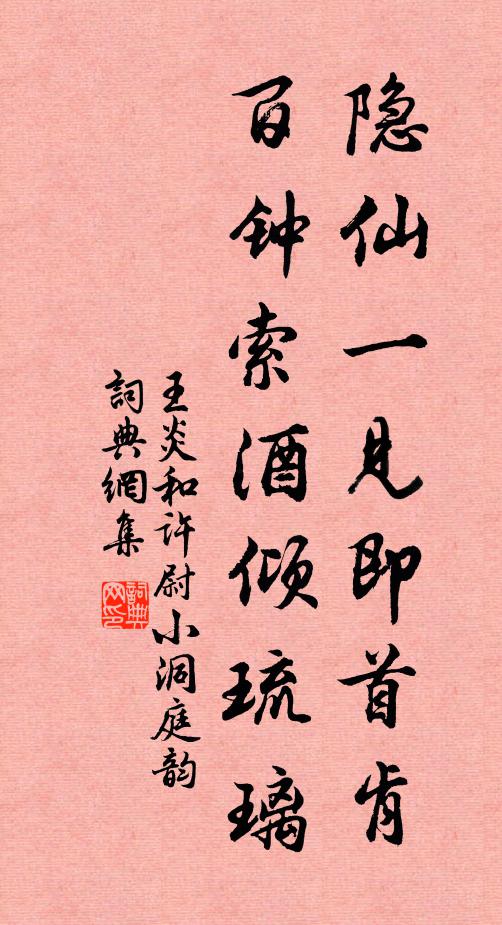 隐仙一见即首肯
百钟索酒倾琉璃
王炎和许尉小洞庭韵
詞典網集
詞典网印